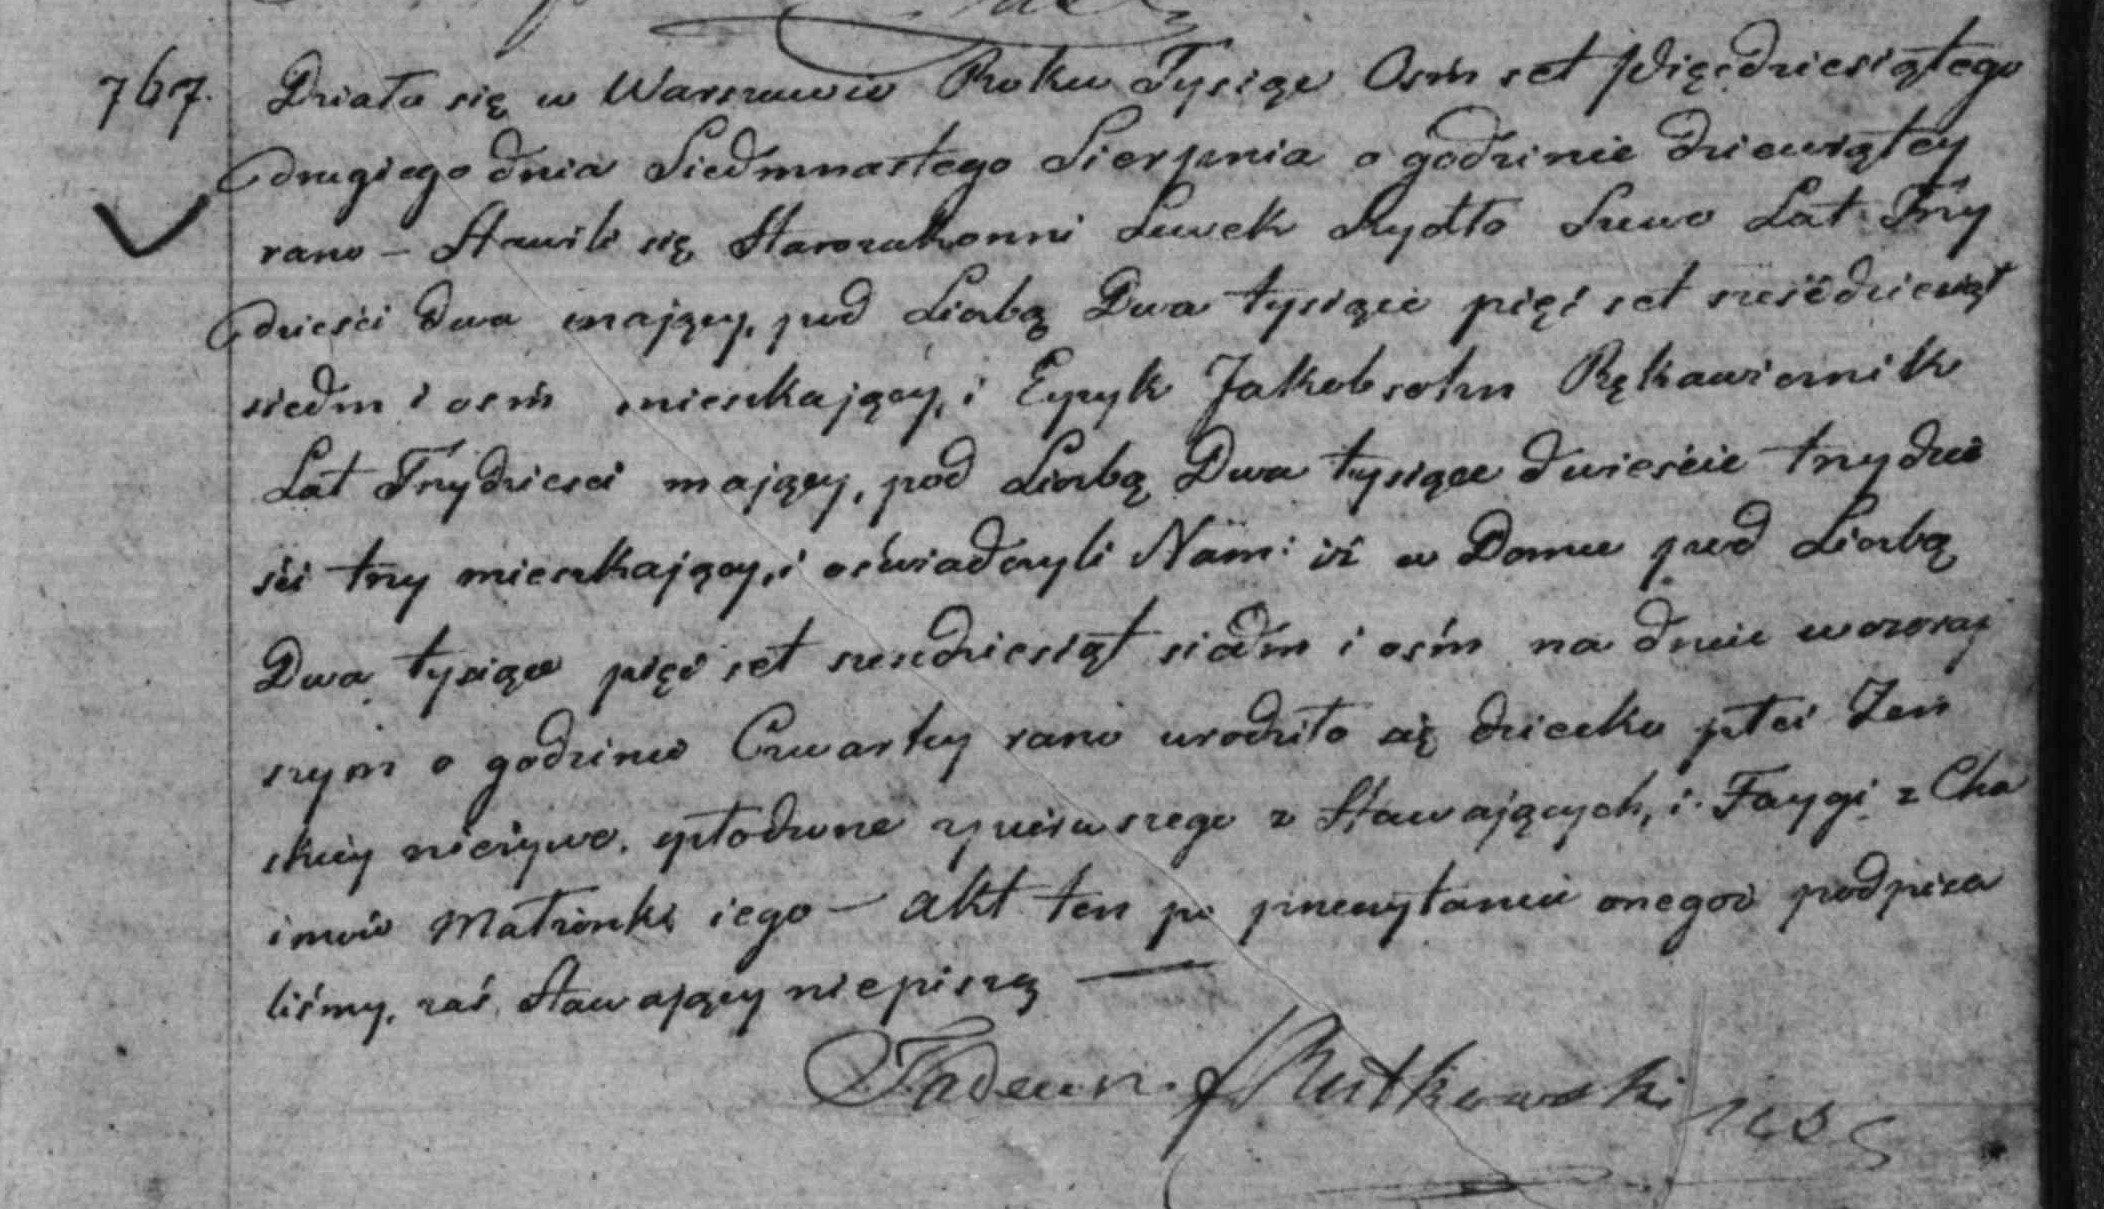 767. Działo się w Warszawie Roku Tysiąc Ośm set Pięćdziesiątego
drugiego dnia Siedmnastego Sierpnia o godzinie dziewiątey
rano – Stawili się Starozakonni Lewek Szydło Szewc Lat Trzy
dzieści dwa maiący, pod Liczbą Dwa tysiące pięć set sześćdziesiąt
siedm i ośm mieszkaiący, i Eyzyk Jakobsohn Rękawicznik
Lat Trzydzieści maiący, pod Liczbą Dwa tysiące dwieście trzydzie
ści trzy mieszkaiący, i oświadczyli Nam: iż w Domu pod Liczbą
Dwa tysiące pięć set sześdziesiąt siedm i ośm na dniu wczoray
szym o godzinie Czwartey rano urodziło się dziecko płci Żeń
skiey nieżywe. spłodzone z pierwszego z Stawaiących, i Faygi z Cha
imów Małżonki iego – akt ten po przeczytaniu onegoż podpisa
liśmy, zaś Stawaiący niepiszą —
Tadeusz Rutkowski